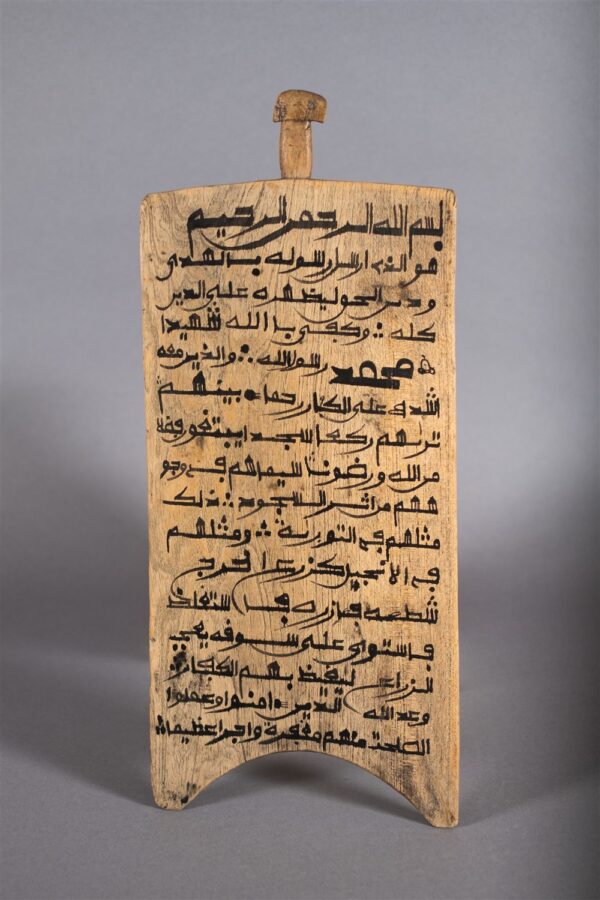 بسم الله الرحمن الرحيم
هو الذي ارسل رسوله بالهدى
ودين الحق ليظهره على الدين
كله ؞ وكفى با الله شهيدا
محمد رسول الله ؞ والذين معه
اشداء على الكفار رحماء بينهم
تريهم ركعا سجدا يبتغون فضلا
من الله ورضونا سيماهم في وجو
ههم من اثر السجود ؞ ذلك
مثلهم في التورية ؞ ومثلهم
في الانجيل كزرع اخرج
شطءه فازره فا ستغلظ
فاستوى على سوقه يعجب
الزراع ليغيظ بهم الكفار
وعد الله الذين ءامنوا وعملوا
الصلحت منهم مغفرة واجرا عظيما